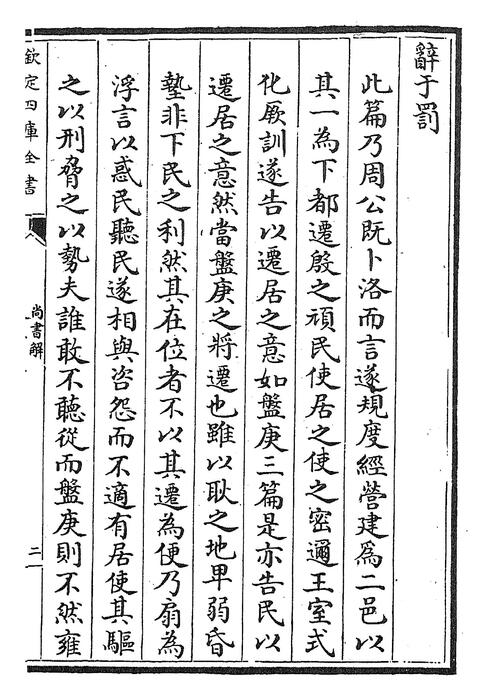 辭于罰
此篇乃周公既卜洛而言遂規度經營建為二邑以
其一為下都遷殷之頑民使居之使之密邇王室式
化厥訓遂告以遷居之意如盤庚三篇是亦告民以
遷居之意然當盤庚之將遷也雖以耿之地卑弱昏
墊非下民之利然其在位者不以其遷為便乃扇為
浮言以惑民聽民遂相與咨怨而不適有居使其驅
之以刑脅之以勢夫誰敢不聽從而盤庚則不然雍
欽定四庫全書
尚書解
二